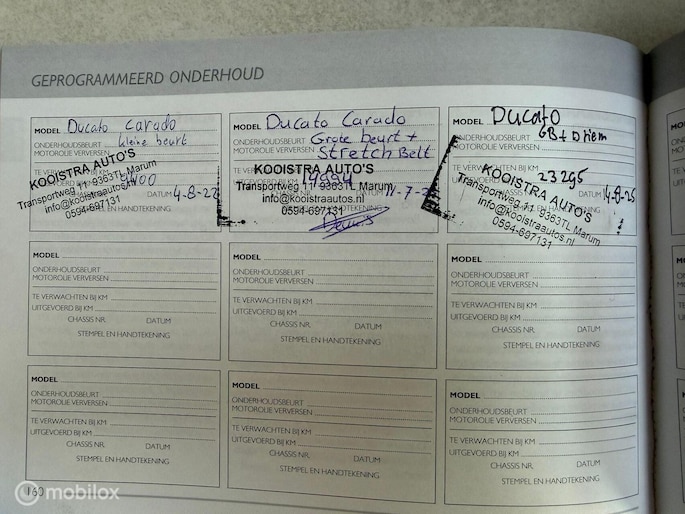 GEPROGRAMMEERD ONDERHOUD
MODEL Ducato Carado
ONDERHOUDSBEURT kleine beurt
MOTOROLIE VERVERSEN
KOOISTRA AUTO'S
Transportweg 11 9363TL Marum
info@kooistraautos.nl
0594-697131
DATUM 4-8-22
MODEL Ducato Carado
ONDERHOUDSBEURT Grote beurt +
MOTOROLIE VERVERSEN Stretch Belt
KOOISTRA AUTO'S
Transportweg 11 9363TL Marum
info@kooistraautos.nl
0594-697131
MODEL Ducato
ONDERHOUDSBEURT GB + D riem
MOTOROLIE VERVERSEN
KOOISTRA AUTO'S
23295
Transportweg 11 9363TL Marum
info@kooistraautos.nl
0594-697131
DATUM 14-8-25
MODEL
ONDERHOUDSBEURT
MOTOROLIE VERVERSEN
TE VERWACHTEN BIJ KM
UITGEVOERD BIJ KM
CHASSIS NR. DATUM
STEMPEL EN HANDTEKENING
MODEL
ONDERHOUDSBEURT
MOTOROLIE VERVERSEN
TE VERWACHTEN BIJ KM
UITGEVOERD BIJ KM
CHASSIS NR. DATUM
STEMPEL EN HANDTEKENING
MODEL
ONDERHOUDSBEURT
MOTOROLIE VERVERSEN
TE VERWACHTEN BIJ KM
UITGEVOERD BIJ KM
CHASSIS NR. DATUM
STEMPEL EN HANDTEKENING
MODEL
ONDERHOUDSBEURT
MOTOROLIE VERVERSEN
TE VERWACHTEN BIJ KM
UITGEVOERD BIJ KM
CHASSIS NR. DATUM
STEMPEL EN HANDTEKENING
MODEL
ONDERHOUDSBEURT
MOTOROLIE VERVERSEN
TE VERWACHTEN BIJ KM
UITGEVOERD BIJ KM
CHASSIS NR. DATUM
STEMPEL EN HANDTEKENING
MODEL
ONDERHOUDSBEURT
MOTOROLIE VERVERSEN
TE VERWACHTEN BIJ KM
UITGEVOERD BIJ KM
CHASSIS NR. DATUM
STEMPEL EN HANDTEKENING
160
mobilox